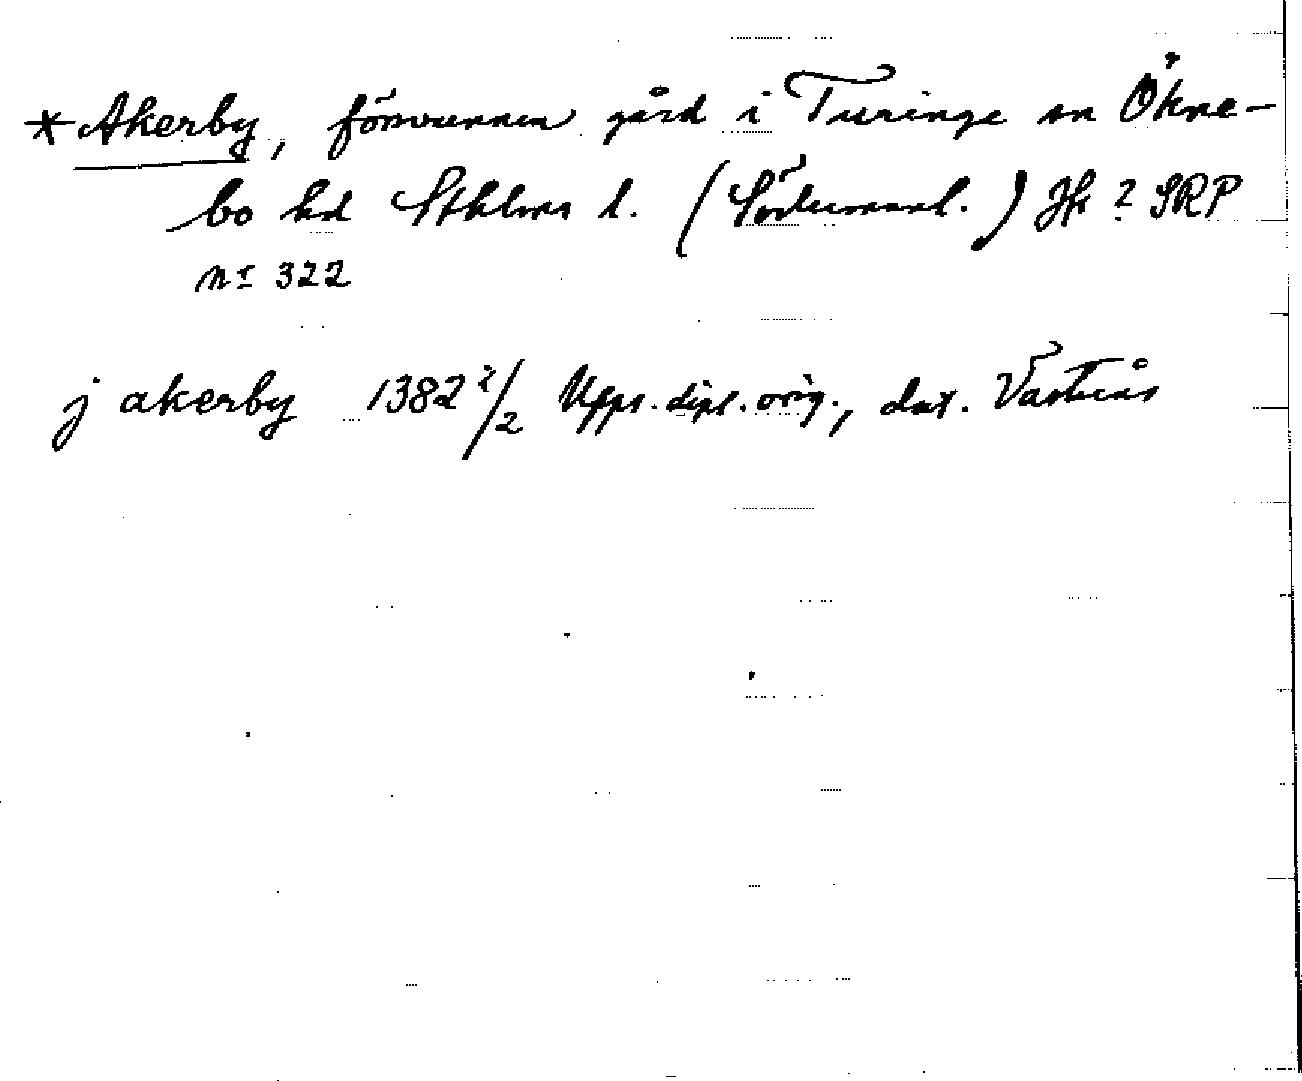 *Akerby, försvunnen gård i Turinge snÖkne-
bo hd Sthlms l. (Södermanl.) Jfr ? SRP
nr 322
j akerby 1382 2/2 Upps. dipl. orig., dat. Västerås